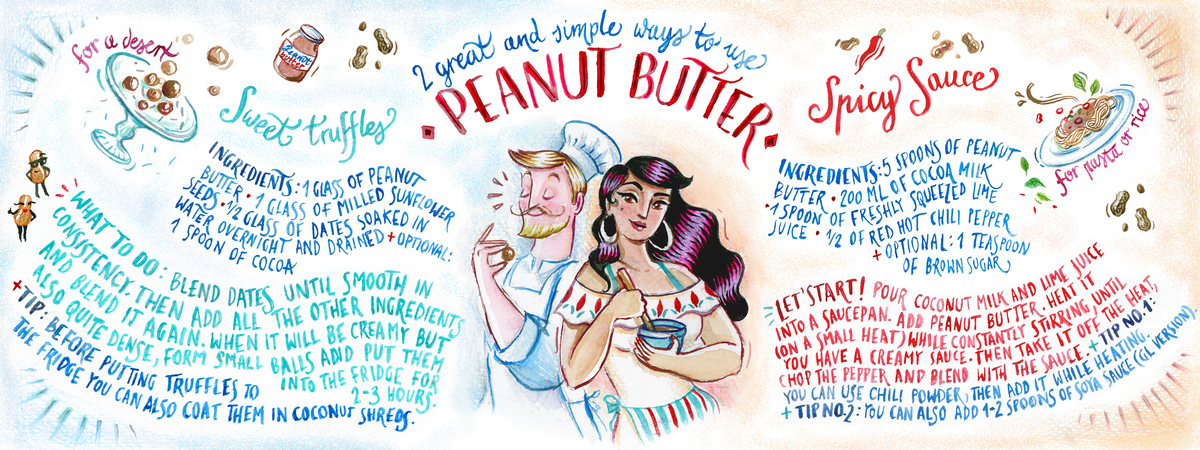 2 great and simple ways to use
PEANUT BUTTER
for a desert
Peanut
butter
Sweet truffles
INGREDIENTS: 1 GLASS OF PEANUT
BUTTER • 1 GLASS OF MILLED SUNFLOWER
SEEDS • 1/2 GLASS OF DATES SOAKED IN
WATER OVERNIGHT AND DRAINED + OPTIONAL:
1 SPOON OF COCOA
WHAT TO DO: BLEND DATES UNTIL SMOOTH IN
CONSISTENCY, THEN ADD ALL THE OTHER INGREDIENTS
AND BLEND IT AGAIN. WHEN IT WILL BE CREAMY BUT
ALSO QUITE DENSE, FORM SMALL BALLS AND PUT THEM
INTO THE FRIDGE FOR
2-3 HOURS.
+ TIP: BEFORE PUTTING TRUFFLES TO
THE FRIDGE YOU CAN ALSO COAT THEM IN COCONUT SHREDS.
Spicy Sauce
for pasta or rice
INGREDIENTS: 5 SPOONS OF PEANUT
BUTTER • 200 ML OF COCOA MILK
• 1 SPOON OF FRESHLY SQUEEZED LIME
JUICE • 1/2 OF RED HOT CHILI PEPPER
+ OPTIONAL: 1 TEASPOON
OF BROWN SUGAR
LET'START! POUR COCONUT MILK AND LIME JUICE
INTO A SAUCEPAN. ADD PEANUT BUTTER. HEAT IT
(ON A SMALL HEAT) WHILE CONSTANTLY STIRRING, UNTIL
YOU HAVE A CREAMY SAUCE. THEN TAKE IT OFF THE HEAT,
CHOP THE PEPPER AND BLEND WITH THE SAUCE. + TIP NO.1:
YOU CAN USE CHILI POWDER, THEN ADD IT WHILE HEATING.
+ TIP NO.2: YOU CAN ALSO ADD 1-2 SPOONS OF SOYA SAUCE (GL VERSION)